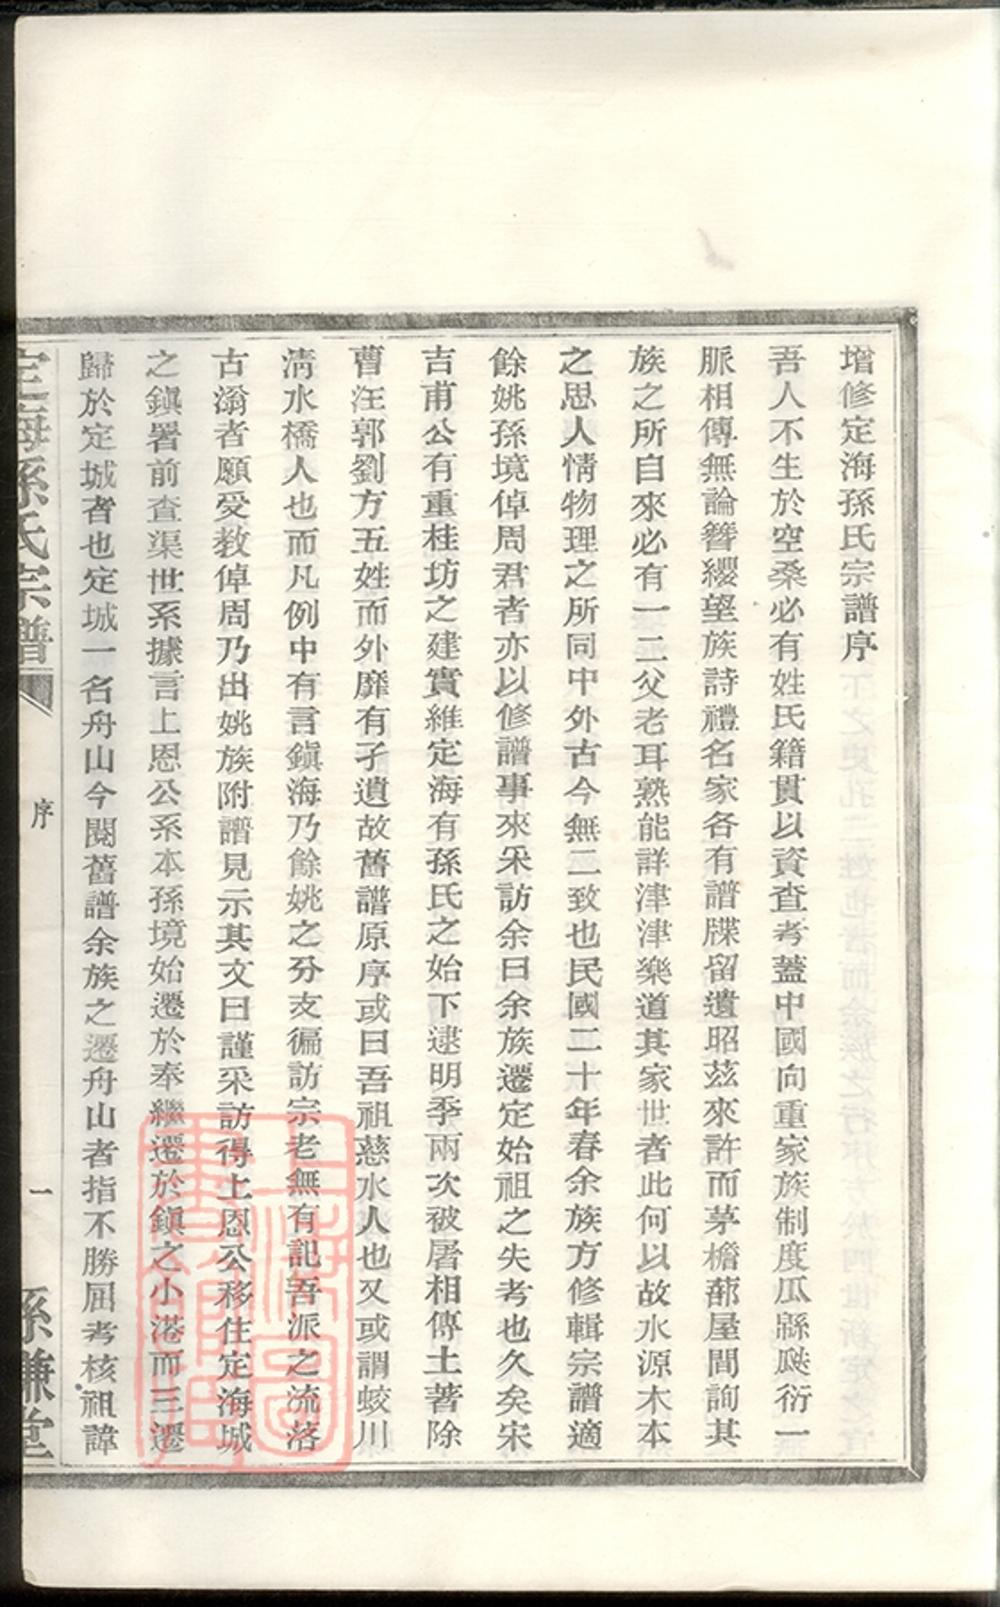 增修定海孫氏宗譜序
吾人不生於空桑必有姓氏籍貫以資查考蓋中國向重家族制度瓜緜瓞衍一
脈相傳無論簪纓望族詩禮名家各有譜牒留遺昭茲來許而茅檐蔀屋間詢其
族之所自來必有一二父老耳熟能詳津津樂道其家世者此何以故水源木本
之思人情物理之所同中外古今無二致也民國二十年春余族方修輯宗譜適
餘姚孫境倬周君者亦以修譜事來采訪余曰余族遷定始祖之失考也久矣宋
吉甫公有重桂坊之建實維定海有孫氏之始下逮明季兩次被屠相傳土著除
曹汪郭劉方五姓而外靡有孑遺故舊譜原序或曰吾祖慈水人也又或謂蛟川
清水橋人也而凡例中有言鎭海乃餘姚之分支徧訪宗老無有記吾派之流落
古滃者願受教倬周乃出姚族附譜見示其文曰謹采訪得上恩公移住定海城
之鎭署前查渠世系據言上恩公系本孫境始遷於奉繼遷於鎭之小港而三遷
歸於定城者也定城一名舟山今閱舊譜余族之遷舟山者指不勝屈考核祖諱
定海孫氏宗譜
序
一
孫謙堂
上海圖書館藏